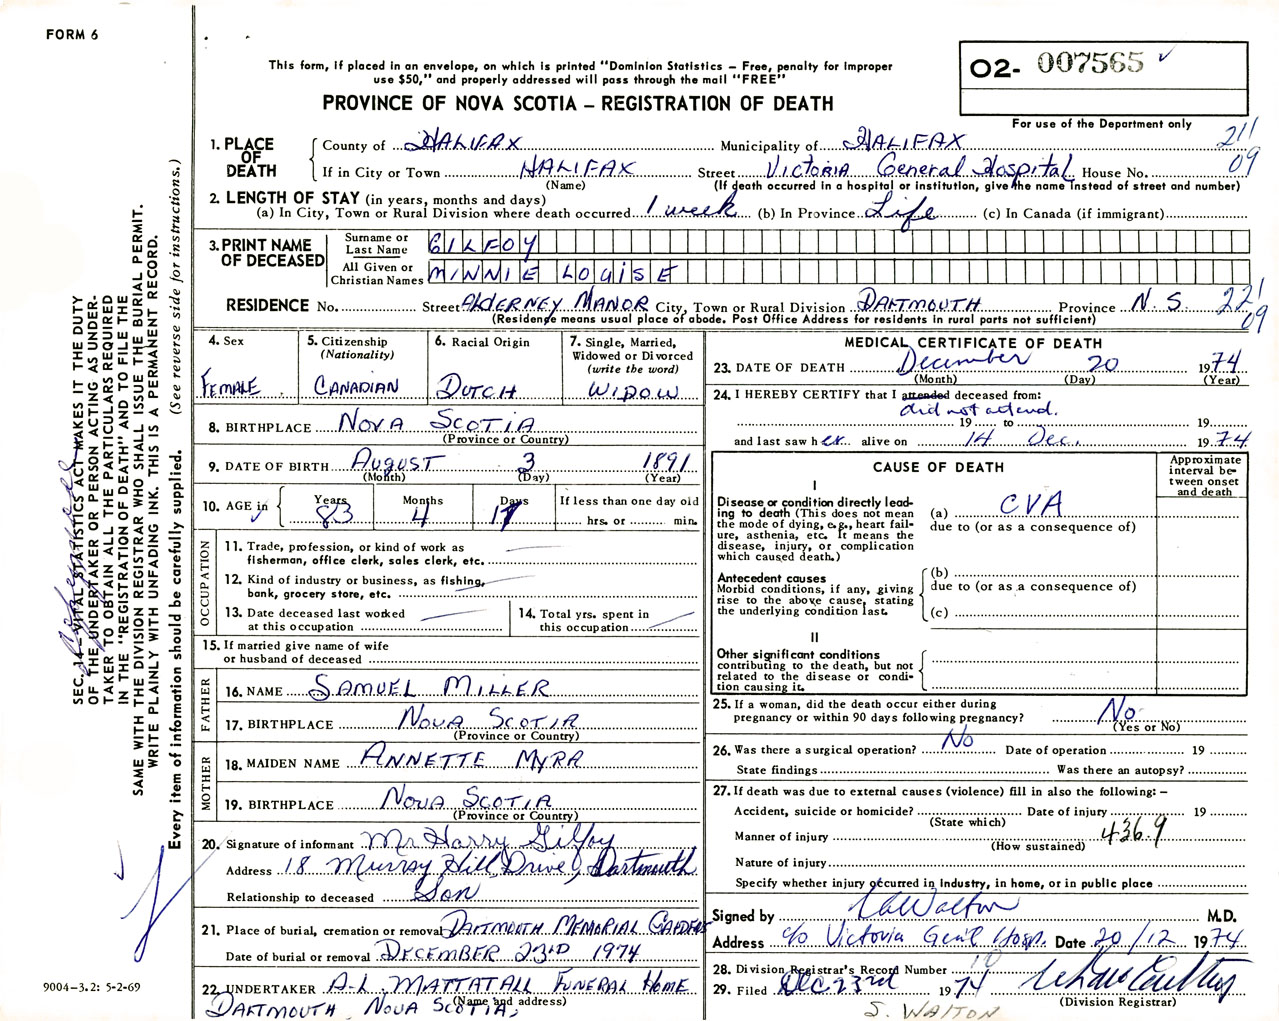 FORM 6
This form, if placed in an envelope, on which is printed "Dominion Statistics – Free, penalty for improper
use $50," and properly addressed will pass through the mail "FREE"
O2- 007565
PROVINCE OF NOVA SCOTIA – REGISTRATION OF DEATH
For use of the Department only
1. PLACE OF DEATH County of HALIFAX Municipality of HALIFAX 211
If in City or Town HALIFAX Street VICTORIA General Hospital House No. 09
(Name) (If death occurred in a hospital or institution, give the name instead of street and number)
2. LENGTH OF STAY (in years, months and days)
(a) In City, Town or Rural Division where death occurred 1 week (b) In Province Life (c) In Canada (if immigrant)
3. PRINT NAME OF DECEASED Surname or Last Name GILFOY
All Given or Christian Names MINNIE LOUISE
RESIDENCE No. Street ALDERNEY MANOR City, Town or Rural Division DARTMOUTH Province N.S. 221
(Residence means usual place of abode. Post Office Address for residents in rural parts not sufficient) 09
4. Sex FEMALE
5. Citizenship (Nationality) CANADIAN
6. Racial Origin DUTCH
7. Single, Married, Widowed or Divorced (write the word) WIDOW
8. BIRTHPLACE NOVA SCOTIA
(Province or Country)
9. DATE OF BIRTH AUGUST 3 1891
(Month) (Day) (Year)
10. AGE in Years 83 Months 4 Days 17 If less than one day old
hrs. or min.
OCCUPATION
11. Trade, profession, or kind of work as
fisherman, office clerk, sales clerk, etc.
12. Kind of industry or business, as fishing,
bank, grocery store, etc.
13. Date deceased last worked
at this occupation
14. Total yrs. spent in
this occupation
15. If married give name of wife
or husband of deceased
FATHER
16. NAME SAMUEL MILLER
17. BIRTHPLACE NOVA SCOTIA
(Province or Country)
MOTHER
18. MAIDEN NAME ANNETTE MYRA
19. BIRTHPLACE NOVA SCOTIA
(Province or Country)
20. Signature of informant Mr Harry Gilfoy
Address 18 Murray Hill Drive, Dartmouth
Relationship to deceased Son
21. Place of burial, cremation or removal DARTMOUTH MEMORIAL GARDENS
Date of burial or removal DECEMBER 23RD 1974
22. UNDERTAKER A.L. MATTATALL FUNERAL HOME
(Name and address)
DARTMOUTH, NOVA SCOTIA,
MEDICAL CERTIFICATE OF DEATH
23. DATE OF DEATH December 20 1974
(Month) (Day) (Year)
24. I HEREBY CERTIFY that I attended deceased from:
did not attend.
19 to 19
and last saw her alive on 14 Dec. 1974
CAUSE OF DEATH
Approximate interval between onset and death
I
Disease or condition directly leading to death (This does not mean the mode of dying, e.g., heart failure, asthenia, etc. It means the disease, injury, or complication which caused death.)
(a) CVA
due to (or as a consequence of)
Antecedent causes
Morbid conditions, if any, giving rise to the above cause, stating the underlying condition last.
(b)
due to (or as a consequence of)
(c)
II
Other significant conditions contributing to the death, but not related to the disease or condition causing it.
25. If a woman, did the death occur either during
pregnancy or within 90 days following pregnancy? No
(Yes or No)
26. Was there a surgical operation? No Date of operation 19
State findings Was there an autopsy?
27. If death was due to external causes (violence) fill in also the following: –
Accident, suicide or homicide? Date of injury 19
(State which)
Manner of injury 436.9
(How sustained)
Nature of injury
Specify whether injury occurred in Industry, in home, or in public place
Signed by Walton M.D.
Address c/o Victoria Gen'l Hosp. Date 20/12 1974
28. Division Registrar's Record Number
29. Filed Dec 23rd 1974
(Division Registrar)
S. WALTON
SEC. 14 – VITAL STATISTICS ACT MAKES IT THE DUTY
OF THE UNDERTAKER OR PERSON ACTING AS UNDER-
TAKER TO OBTAIN ALL THE PARTICULARS REQUIRED
IN THE "REGISTRATION OF DEATH" AND TO FILE THE
SAME WITH THE DIVISION REGISTRAR WHO SHALL ISSUE THE BURIAL PERMIT.
WRITE PLAINLY WITH UNFADING INK. THIS IS A PERMANENT RECORD.
Every item of information should be carefully supplied. (See reverse side for instructions.)
9004-3.2: 5-2-69